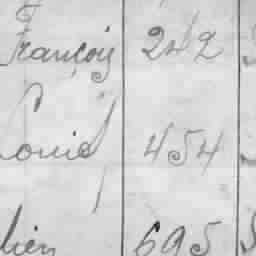 François 242
Louis 454
lien 695